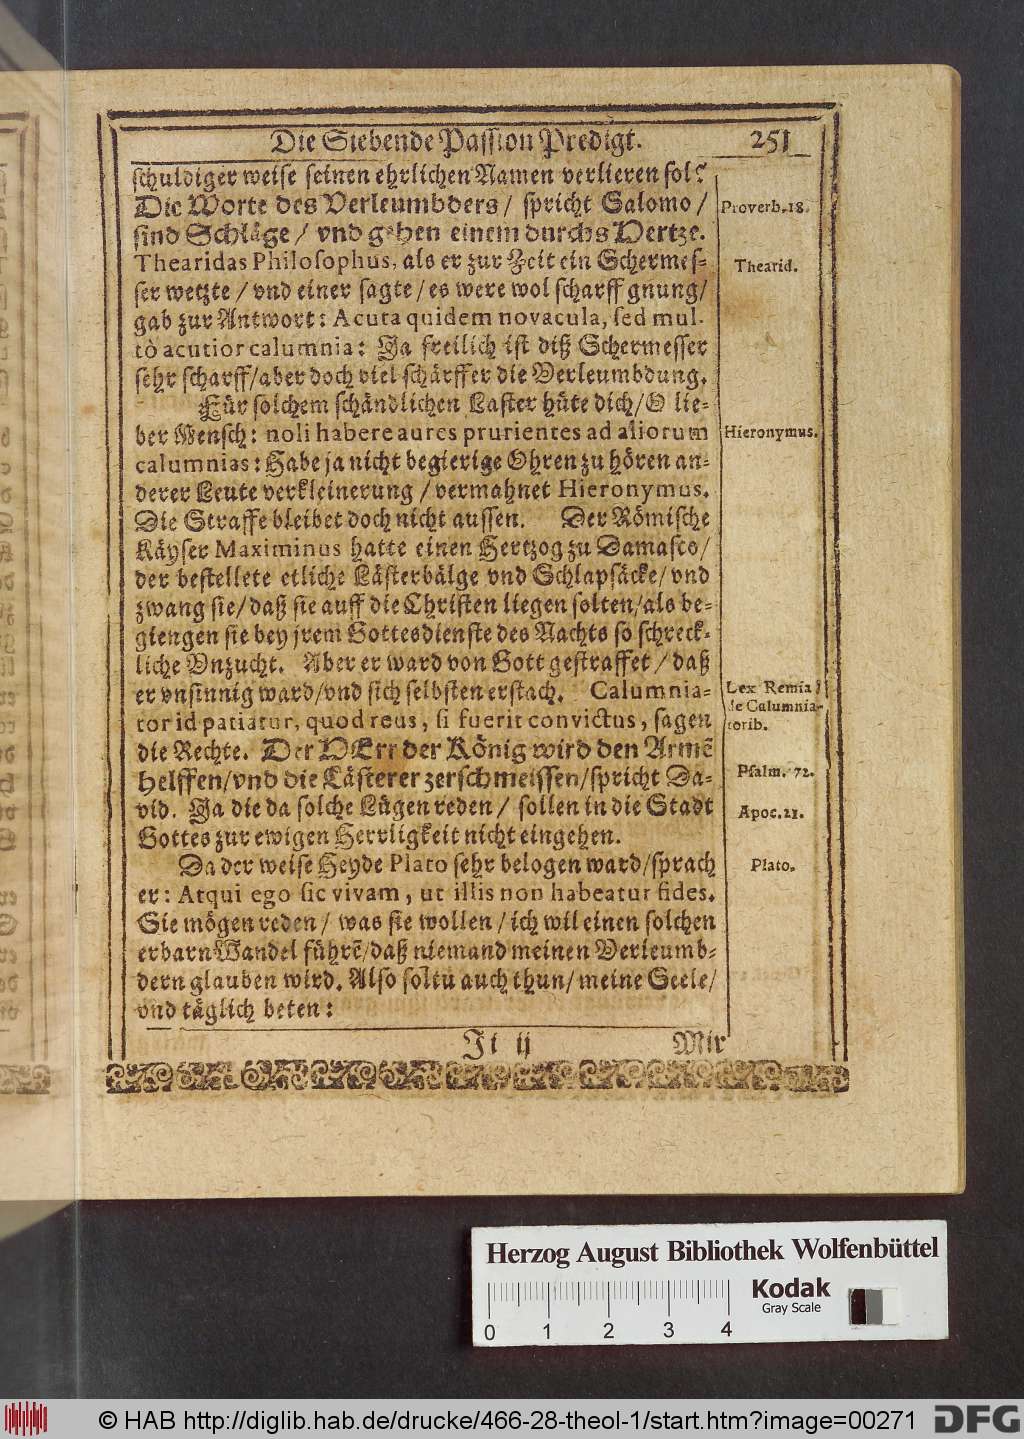 Die Siebende Passion Predigt. 251
schuldiger weise seinen ehrlichen Namen verlieren sol?
Die Worte des Verleumbders / spricht Salomo /
sind Schläge / vnd gehen einem durchs Hertze.
Proverb.18.
Thearidas Philosophus, als er zur Zeit ein Schermes-
Thearid.
ser wetzte / vnd einer sagte / es were wol scharff gnung/
gab zur Antwort: Acuta quidem novacula, sed mul-
tò acutior calumnia: Ja freilich ist diß Schermesser
sehr scharff/aber doch viel schärffer die Verleumbdung.
Für solchem schändlichen Laster hüte dich/O lie-
ber Mensch: noli habere aures prurientes ad aliorum
Hieronymus.
calumnias: Habe ja nicht begierige Ohren zu hören an-
derer Leute verkleinerung / vermahnet Hieronymus.
Die Straffe bleibet doch nicht aussen. Der Römische
Käyser Maximinus hatte einen Hertzog zu Damasco/
der bestellete etliche Lästerbälge vnd Schlapsäcke/ vnd
zwang sie/daß sie auff die Christen liegen solten/als be-
giengen sie bey jrem Gottesdienste des Nachts so schreck-
liche Vnzucht. Aber er ward von Gott gestraffet / daß
er vnsinnig ward/vnd sich selbsten erstach. Calumnia-
tor id patiatur, quod reus, si fuerit convictus, sagen
Lex Remia
de Calumnia-
torib.
die Rechte. Der HErr der König wird den Armẽ
helffen/vnd die Lästerer zerschmeissen/spricht Da-
Psalm. 72.
vid. Ja die da solche Lügen reden / sollen in die Stadt
Apoc.21.
Gottes zur ewigen Herrligkeit nicht eingehen.
Da der weise Heyde Plato sehr belogen ward/sprach
Plato.
er: Atqui ego sic vivam, ut illis non habeatur fides.
Sie mögen reden / was sie wollen / ich wil einen solchen
erbarn Wandel führẽ/daß niemand meinen Verleumb-
dern glauben wird. Also soltu auch thun/ meine Seele/
vnd täglich beten:
Ji ij Mir
Herzog August Bibliothek Wolfenbüttel
Kodak
Gray Scale
0 1 2 3 4
© HAB http://diglib.hab.de/drucke/466-28-theol-1/start.htm?image=00271
DFG